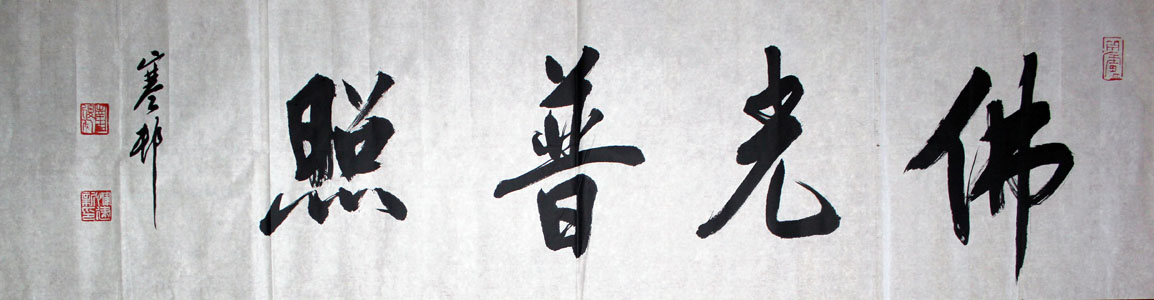 佛光普照
寒邨